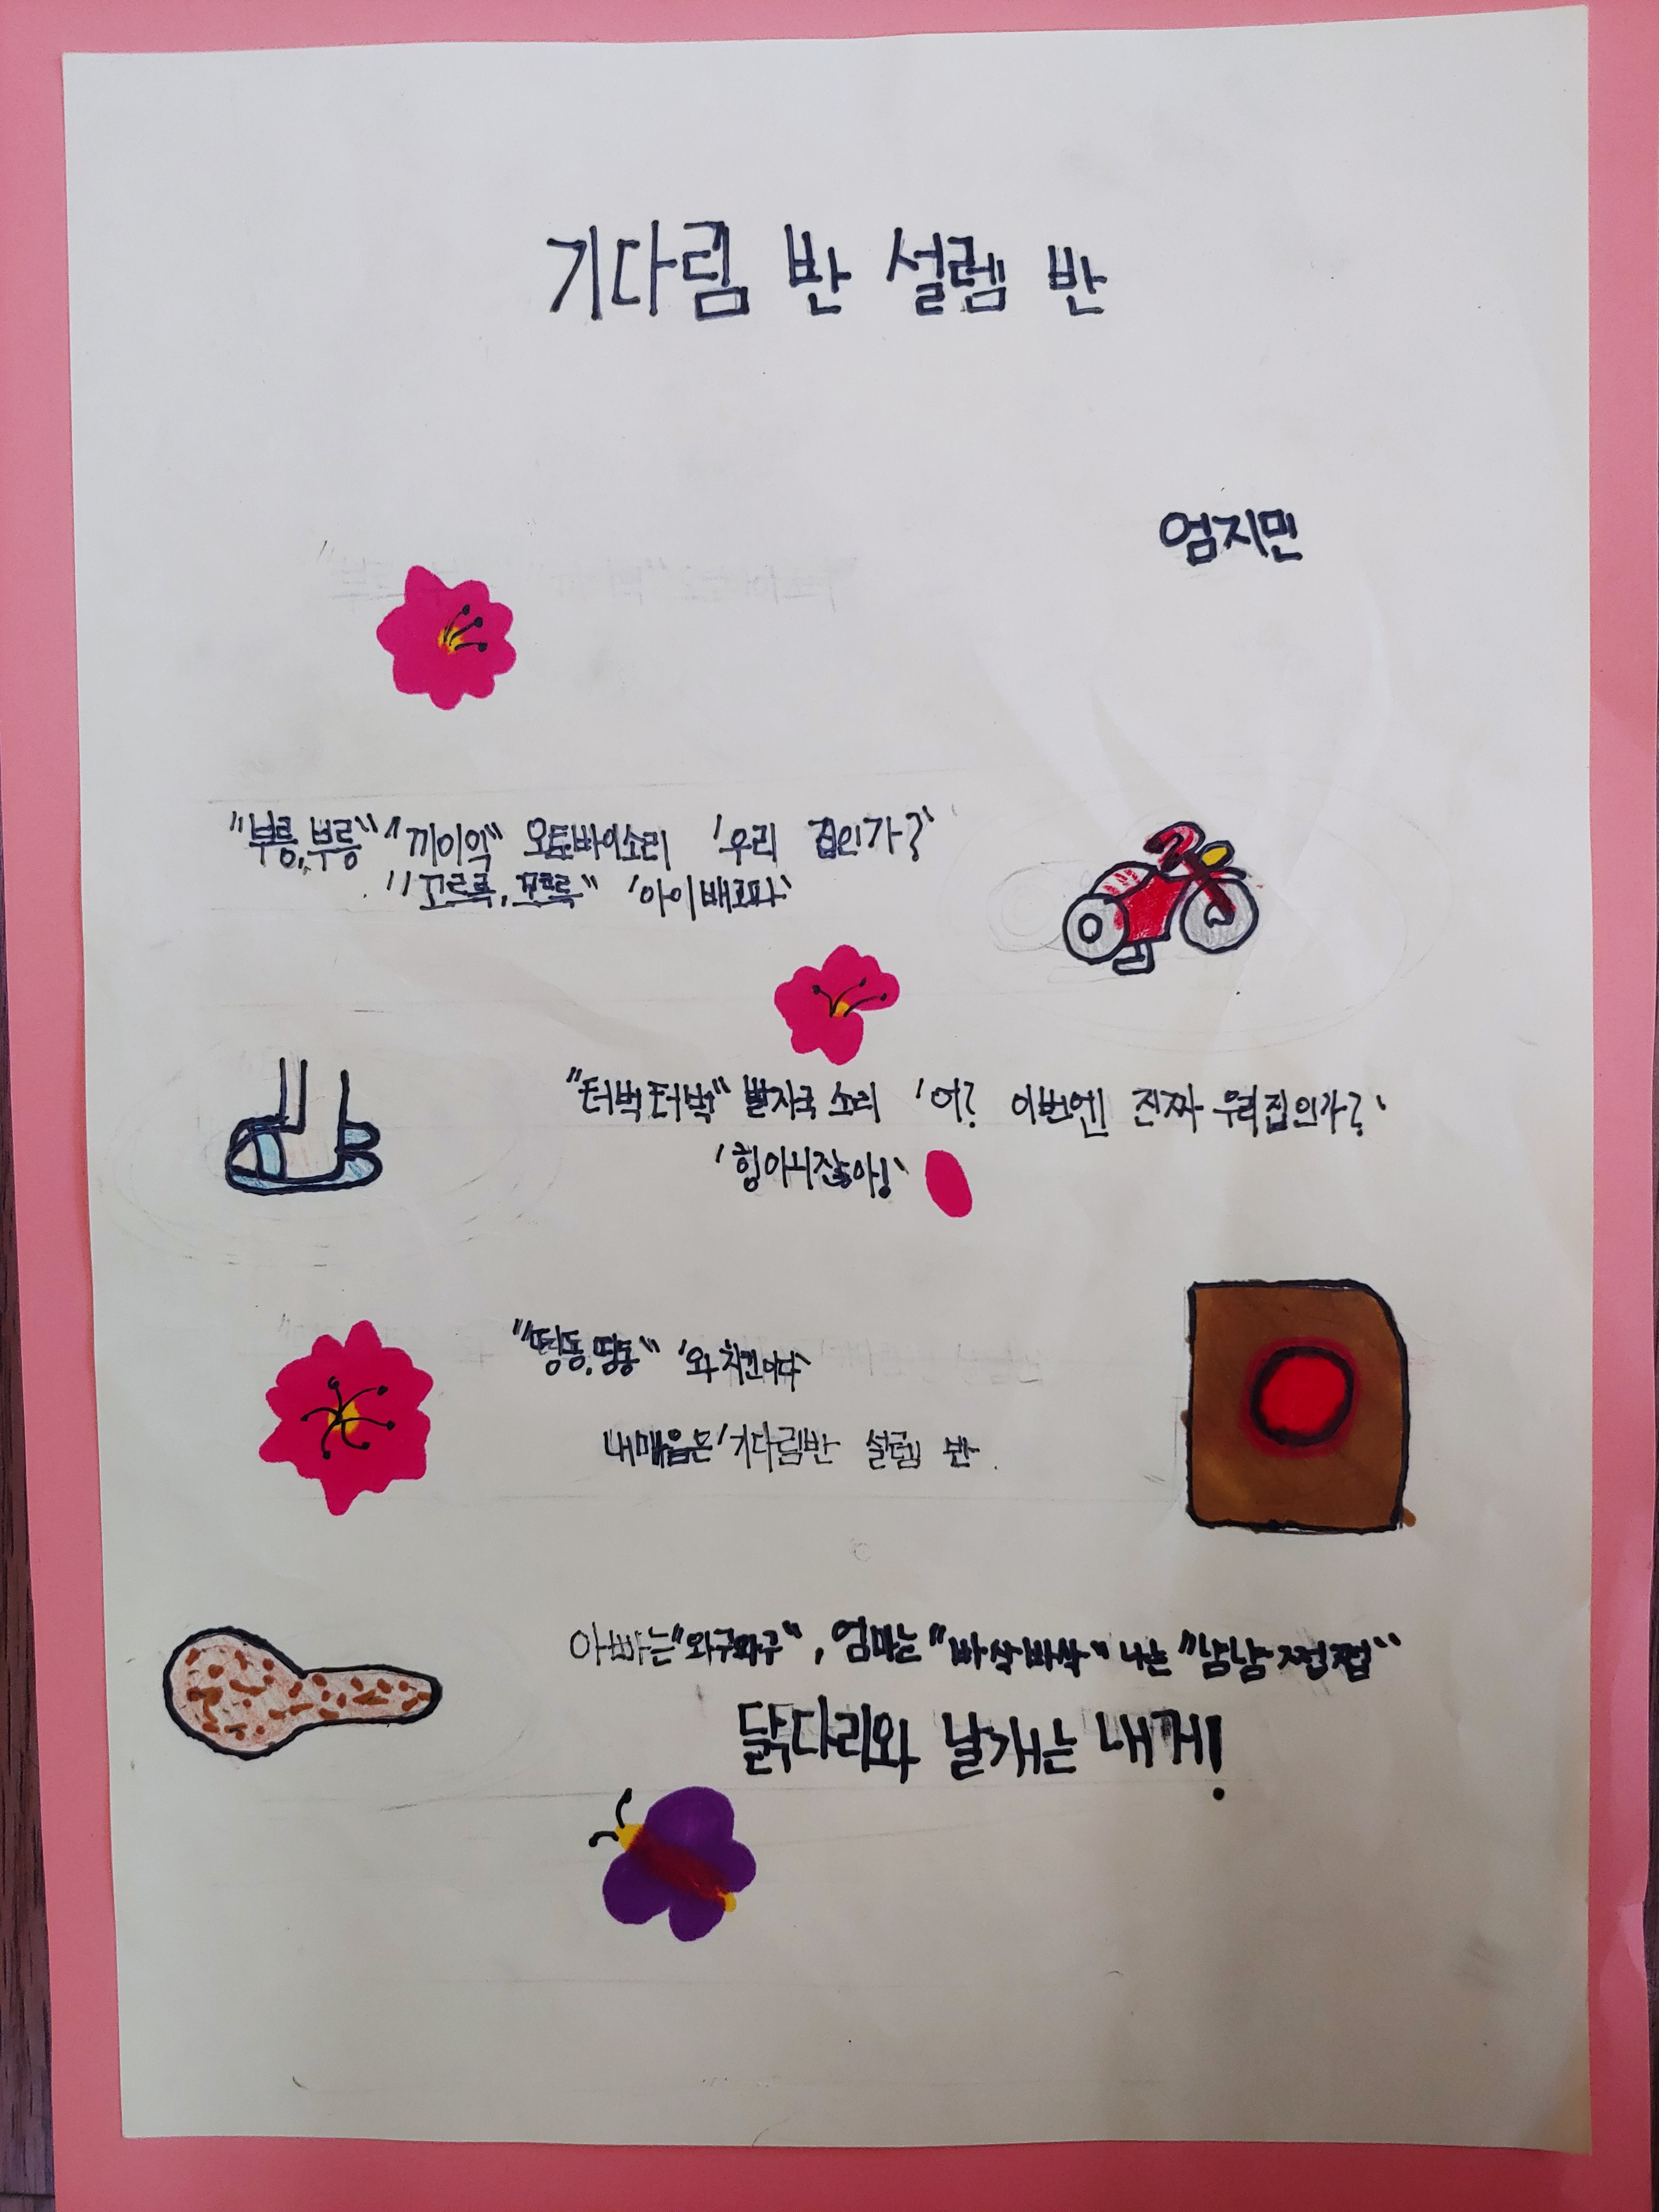 기다림 반 설렘 반
엄지민
"부릉,부릉" "끼이익" 오토바이소리 '우리 집인가?'
"꼬르륵,꼬르륵" '아이 배고파'
"터벅터벅" 발자국 소리 '어? 이번엔 진짜 우리집인가?'
'힝아니잖아!'
"띵동,띵동" '와 치킨이다'
내마음은 '기다림반 설렘 반
아빠는"와구와구", 엄마는 "바삭바삭" 나는 "냠냠 쩝쩝"
닭다리와 날개는 내꺼!